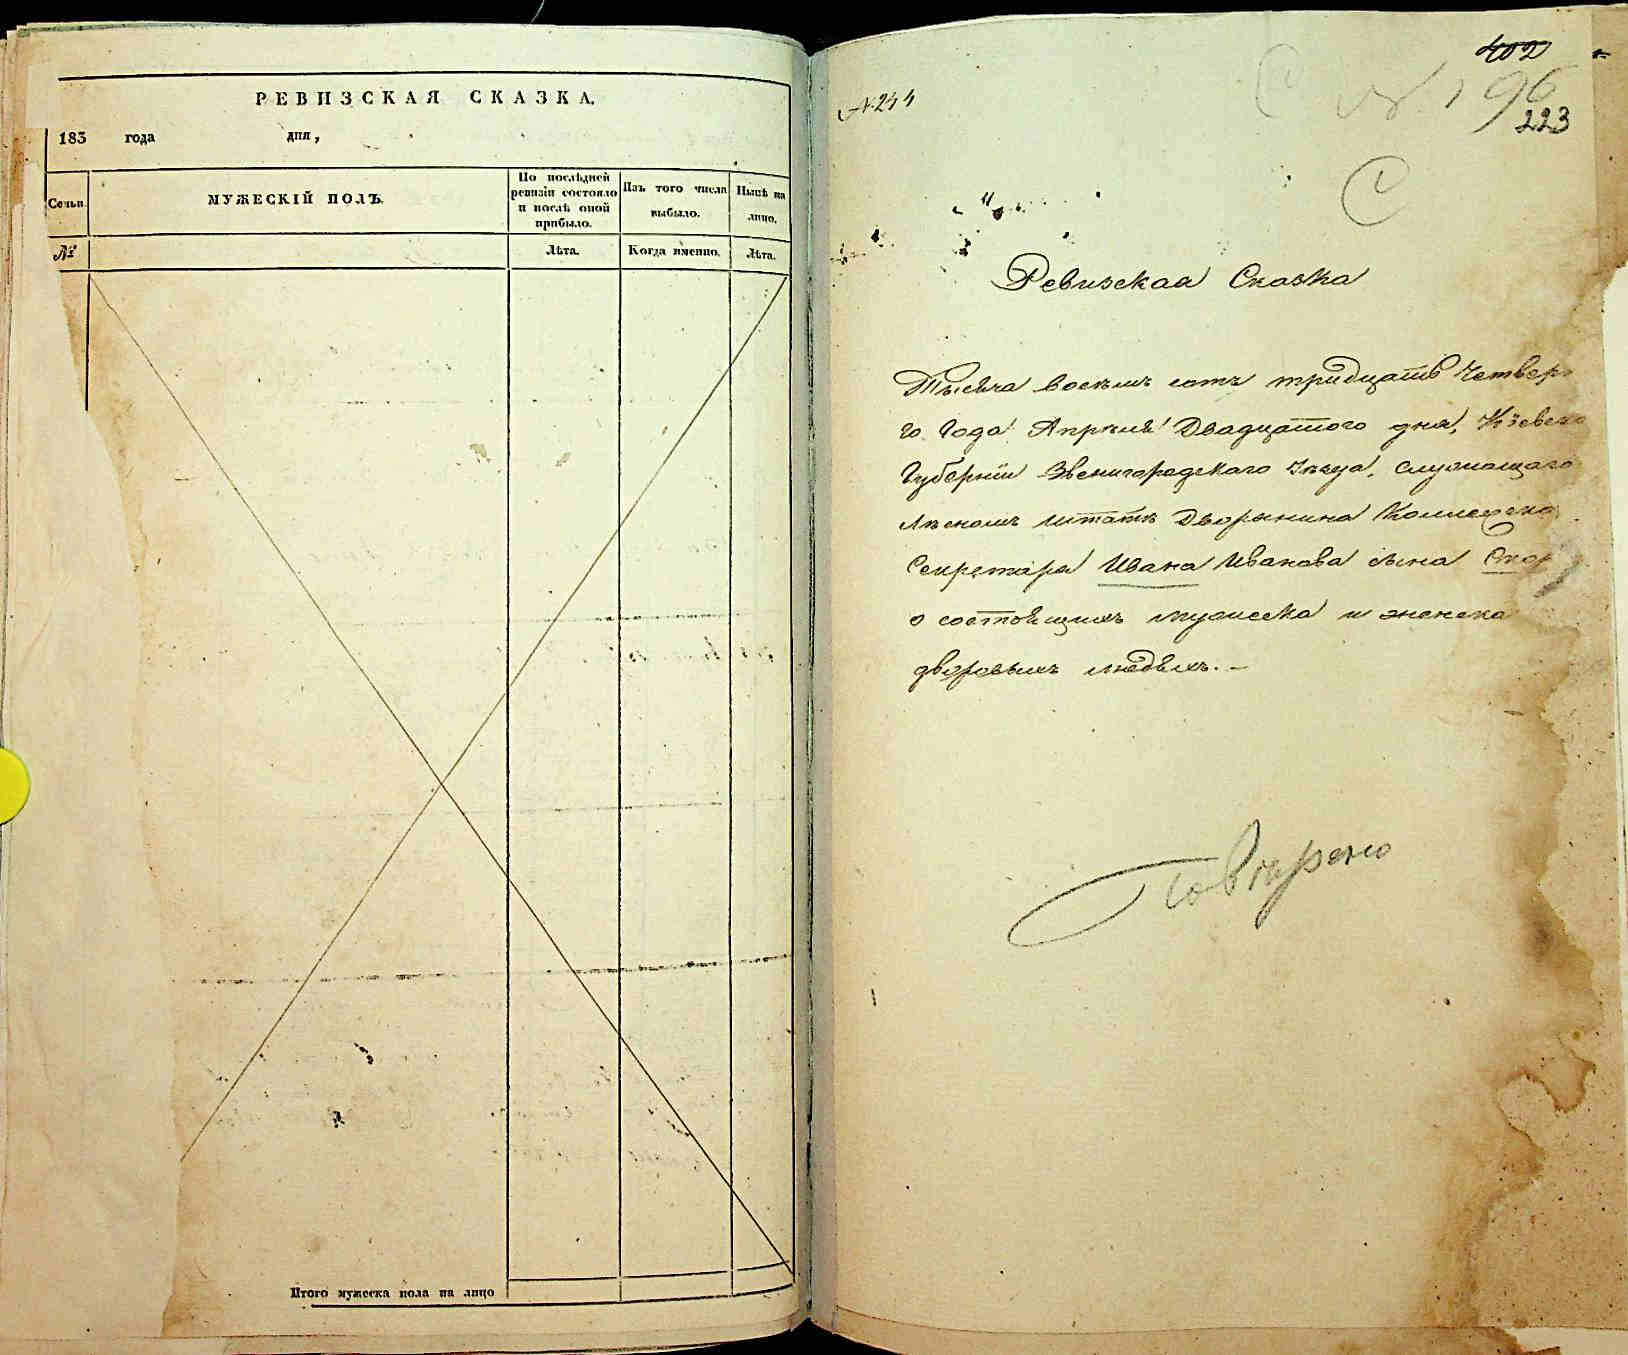 РЕВИЗСКАЯ СКАЗКА.
183 года дня,
Семьи.
МУЖЕСКІЙ ПОЛЪ.
По послѣдней ревизіи состояло и послѣ оной прибыло.
Изъ того числа выбыло.
Нынѣ на лицо.
№
Лѣта.
Когда именно.
Лѣта.
Итого мужеска пола на лицо
402
№ 244
196
223
С
Ревизская Сказка
Тысяча восемь сотъ тридцать Четвер
го Года Апреля Двадцатого дня, Кіевско
Губерніи Звенигородскаго Уезда, Служащаго
Лесномъ штатѣ Дворянина Коллежско
Секретаря Ивана Иванова сына
о состоящихъ мужеска и женска
дворовыхъ людяхъ. –
Повѣрено